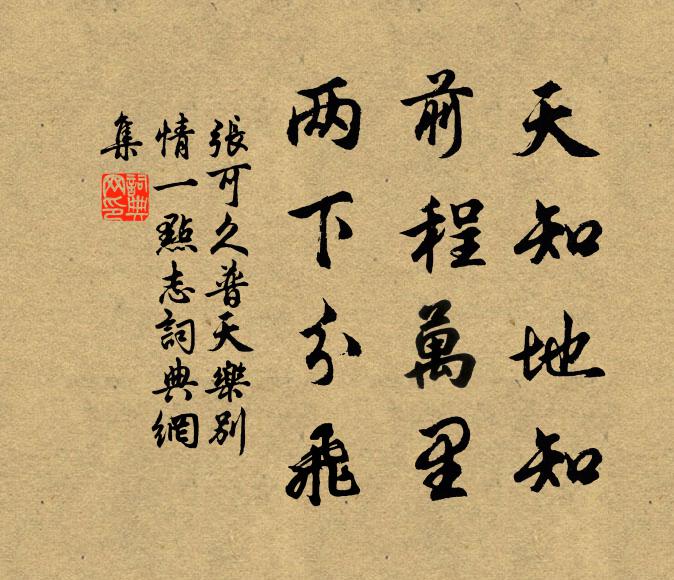 天知地知
前程萬里
两下分飛
張可久普天樂別
情一點志詞典網
集
詞典
网印